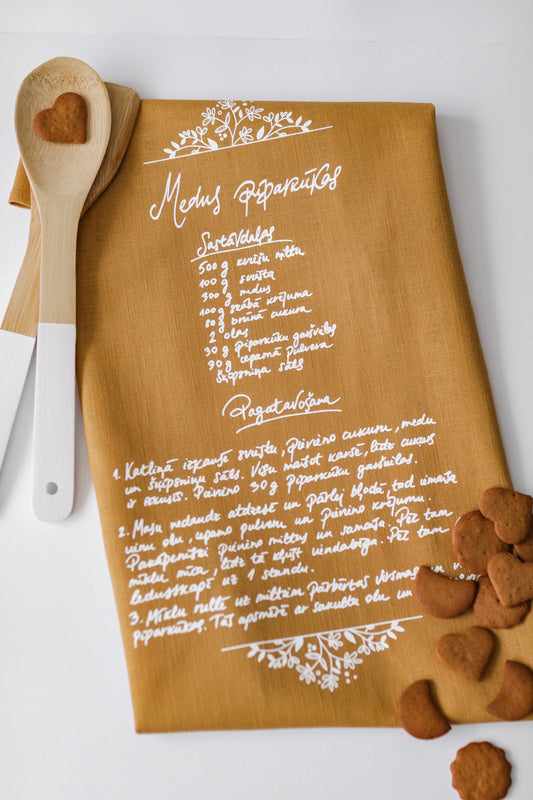 Medus piparkūkas
Sastāvdaļas
500 g kviešu miltu
100 g sviesta
300 g medus
100 g skābā krējuma
80 g brūnā cukura
2 olas
30 g piparkūku garšvielas
30 g cepamā pulvera
Šķipsniņa sāls
Pagatavošana
1. Katliņā izkausē sviestu, pievieno cukuru, medu
un šķipsniņu sāls. Visu maisot karsē, līdz cukurs
ir izkusis. Pievieno 30 g piparkūku garšvielas.
2. Masu nedaudz atdzesē un pārlej bļodā, tad iemaisa
vienu olu, cepamo pulveri un pievieno krējumu.
Pakāpeniski pievieno miltus un samaisa. Pēc tam
mīklu mīca, līdz tā kļūst viendabīga. Pēc tam
ledusskapī uz 1 stundu.
3. Mīklu rullē uz miltiem pārbērtas virsmas un
piparkūkas. Tās apsmērē ar sakultu olu un